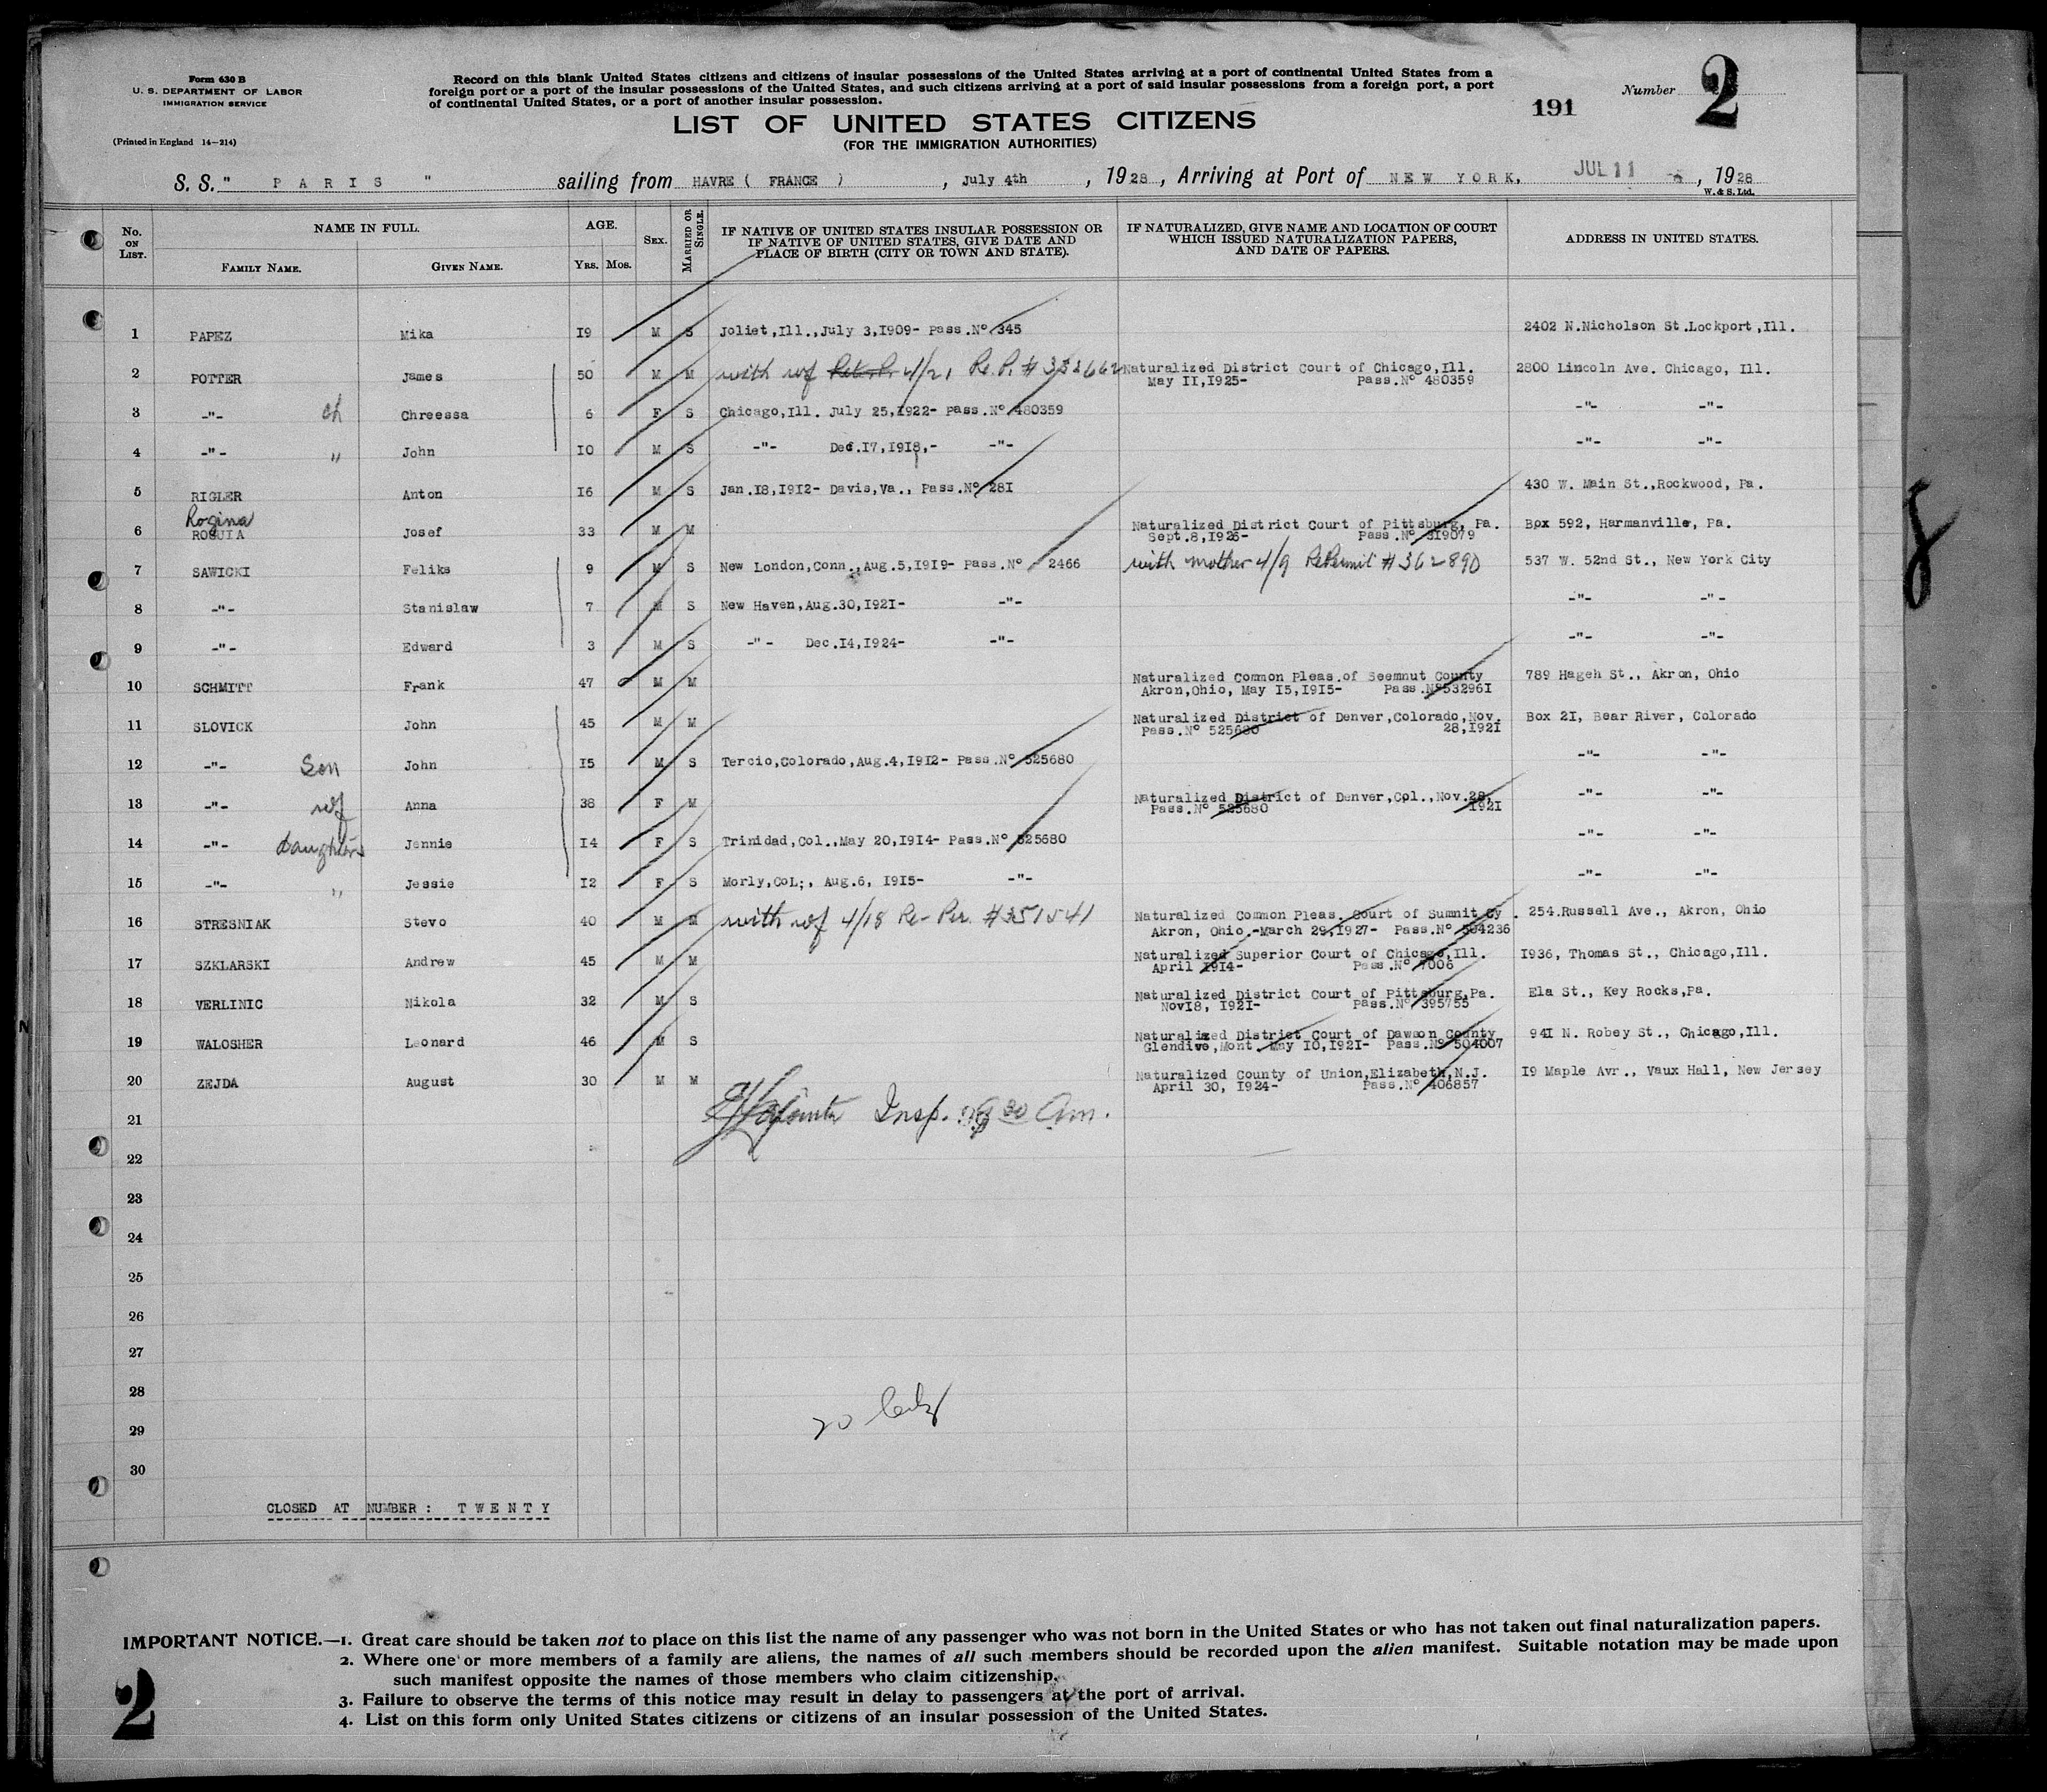 Form 630 B
U. S. DEPARTMENT OF LABOR
IMMIGRATION SERVICE
(Printed in England 14—214)
Record on this blank United States citizens and citizens of insular possessions of the United States arriving at a port of continental United States from a
foreign port or a port of the insular possessions of the United States, and such citizens arriving at a port of said insular possessions from a foreign port, a port
of continental United States, or a port of another insular possession.
LIST OF UNITED STATES CITIZENS
(FOR THE IMMIGRATION AUTHORITIES)
191
Number 2
S. S. " PARIS " sailing from HAVRE ( FRANCE ) , July 4th , 1928 , Arriving at Port of NEW YORK, JUL 11 , 1928
W. & S. Ltd.
No. ON LIST. NAME IN FULL. AGE. SEX. MARRIED OR SINGLE. IF NATIVE OF UNITED STATES INSULAR POSSESSION OR IF NATIVE OF UNITED STATES, GIVE DATE AND PLACE OF BIRTH (CITY OR TOWN AND STATE). IF NATURALIZED, GIVE NAME AND LOCATION OF COURT WHICH ISSUED NATURALIZATION PAPERS, AND DATE OF PAPERS. ADDRESS IN UNITED STATES.
FAMILY NAME. GIVEN NAME. YRS. MOS.
1 PAPEZ Mika 19 M S Joliet,Ill.,July 3,1909- Pass.Nº 345 2402 N.Nicholson St.Lockport,Ill.
2 POTTER James 50 M M with wf 4/21 Re.P. # 332662 Naturalized District Court of Chicago,Ill. 2800 Lincoln Ave. Chicago, Ill.
May II,1925- Pass.Nº 480359
3 -"- ch Chreessa 6 F S Chicago,Ill. July 25,1922- Pass.Nº 480359 -"- -"-
4 -"- " John 10 M S -"- Dec.17,1918,- -"- -"- -"-
5 RIGLER Anton 16 M S Jan.18,1912- Davis,Va., Pass.Nº 281 430 W. Main St.,Rockwood, Pa.
Rogina
6 ROGUIA Josef 33 M M Naturalized District Court of Pittsburg, Pa. Box 592, Harmanville, Pa.
Sept.8,1926- Pass.Nº 319079
7 SAWICKI Feliks 9 M S New London,Conn.,Aug.5,1919- Pass.Nº 2466 with mother 4/9 RePermit #362890 537 W. 52nd St., New York City
8 -"- Stanislaw 7 M S New Haven,Aug.30,1921- -"- -"- -"-
9 -"- Edward 3 M S -"- Dec.14,1924- -"- -"- -"-
10 SCHMITT Frank 47 M M Naturalized Common Pleas.of Seemnut County 789 Hageh St., Akron, Ohio
Akron,Ohio, May 15,1915- Pass.Nº532961
11 SLOVICK John 45 M M Naturalized District of Denver,Colorado,Nov. Box 21, Bear River, Colorado
Pass.Nº 525680 28,1921
12 -"- Son John 15 M S Tercio,Colorado,Aug.4,1912- Pass.Nº 525680 -"- -"-
13 -"- wf Anna 38 F M Naturalized District of Denver,Col.,Nov.28, -"- -"-
Pass.Nº 525680 1921
14 -"- Daughters Jennie 14 F S Trinidad,Col.,May 20,1914- Pass.Nº 525680 -"- -"-
15 -"- " Jessie 12 F S Morly,Col;, Aug.6, 1915- -"- -"- -"-
16 STRESNIAK Stevo 40 M M with wf 4/18 Re-Per. #351541 Naturalized Common Pleas. Court of Sumnit Cy . 254.Russell Ave., Akron, Ohio
Akron, Ohio.-March 29,1927- Pass.Nº 504236
17 SZKLARSKI Andrew 45 M M Naturalized Superior Court of Chicago,Ill. 1936, Thomas St., Chicago,Ill.
April 1914- Pass.Nº 7006
18 VERLINIC Nikola 32 M S Naturalized District Court of Pittsburg,Pa. Ela St., Key Rocks,Pa.
Nov18, 1921- Pass.Nº 395755
19 WALOSHER Leonard 46 M S Naturalized District Court of Dawson County 941 N. Robey St., Chicago,Ill.
Glendive,Mont. May 10,1921- Pass.Nº 504007
20 ZEJDA August 30 M M Naturalized County of Union,Elizabeth,N.J. 19 Maple Avr., Vaux Hall, New Jersey
April 30, 1924- Pass.Nº 406857
21 Insp. 30 Am.
22
23
24
25
26
27
28
29 20
30
CLOSED AT NUMBER : TWENTY
IMPORTANT NOTICE.—1. Great care should be taken not to place on this list the name of any passenger who was not born in the United States or who has not taken out final naturalization papers.
2. Where one or more members of a family are aliens, the names of all such members should be recorded upon the alien manifest. Suitable notation may be made upon
such manifest opposite the names of those members who claim citizenship.
3. Failure to observe the terms of this notice may result in delay to passengers at the port of arrival.
4. List on this form only United States citizens or citizens of an insular possession of the United States.
2